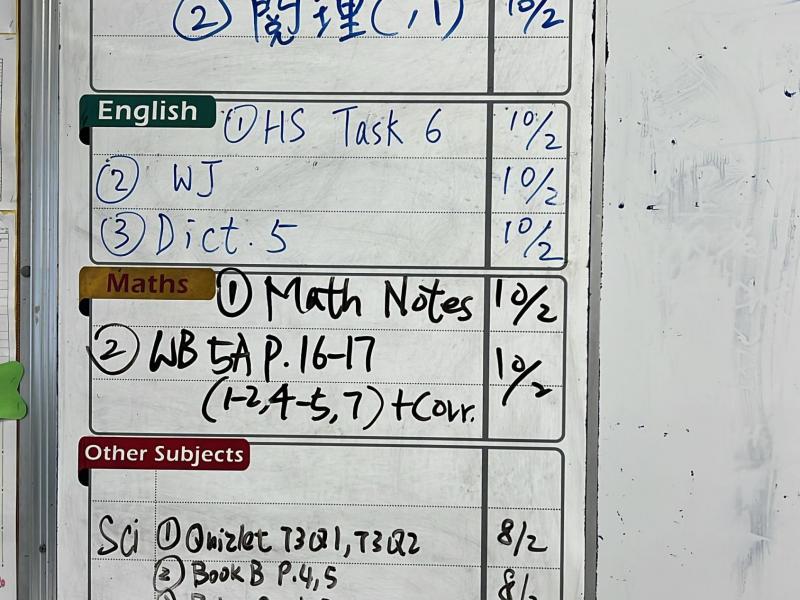 ② 閱理(,1) 10/2
English ① HS Task 6 10/2
② WJ 10/2
③ Dict. 5 10/2
Maths ① Math Notes 10/2
② WB 5A P.16-17 10/2
(1-2,4-5,7)+Corr.
Other Subjects
Sci ① Quizlet T3Q1, T3Q2 8/2
② Book B P.4,5 8/